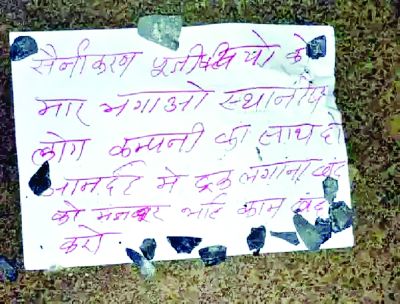 सैनीकरण पूजीपक्षियो को
मार भगाओ स्थानीय
लोग कम्पनी का साथ दो
में ट्रक लगाना बंद
को भाई काम बंद
करो